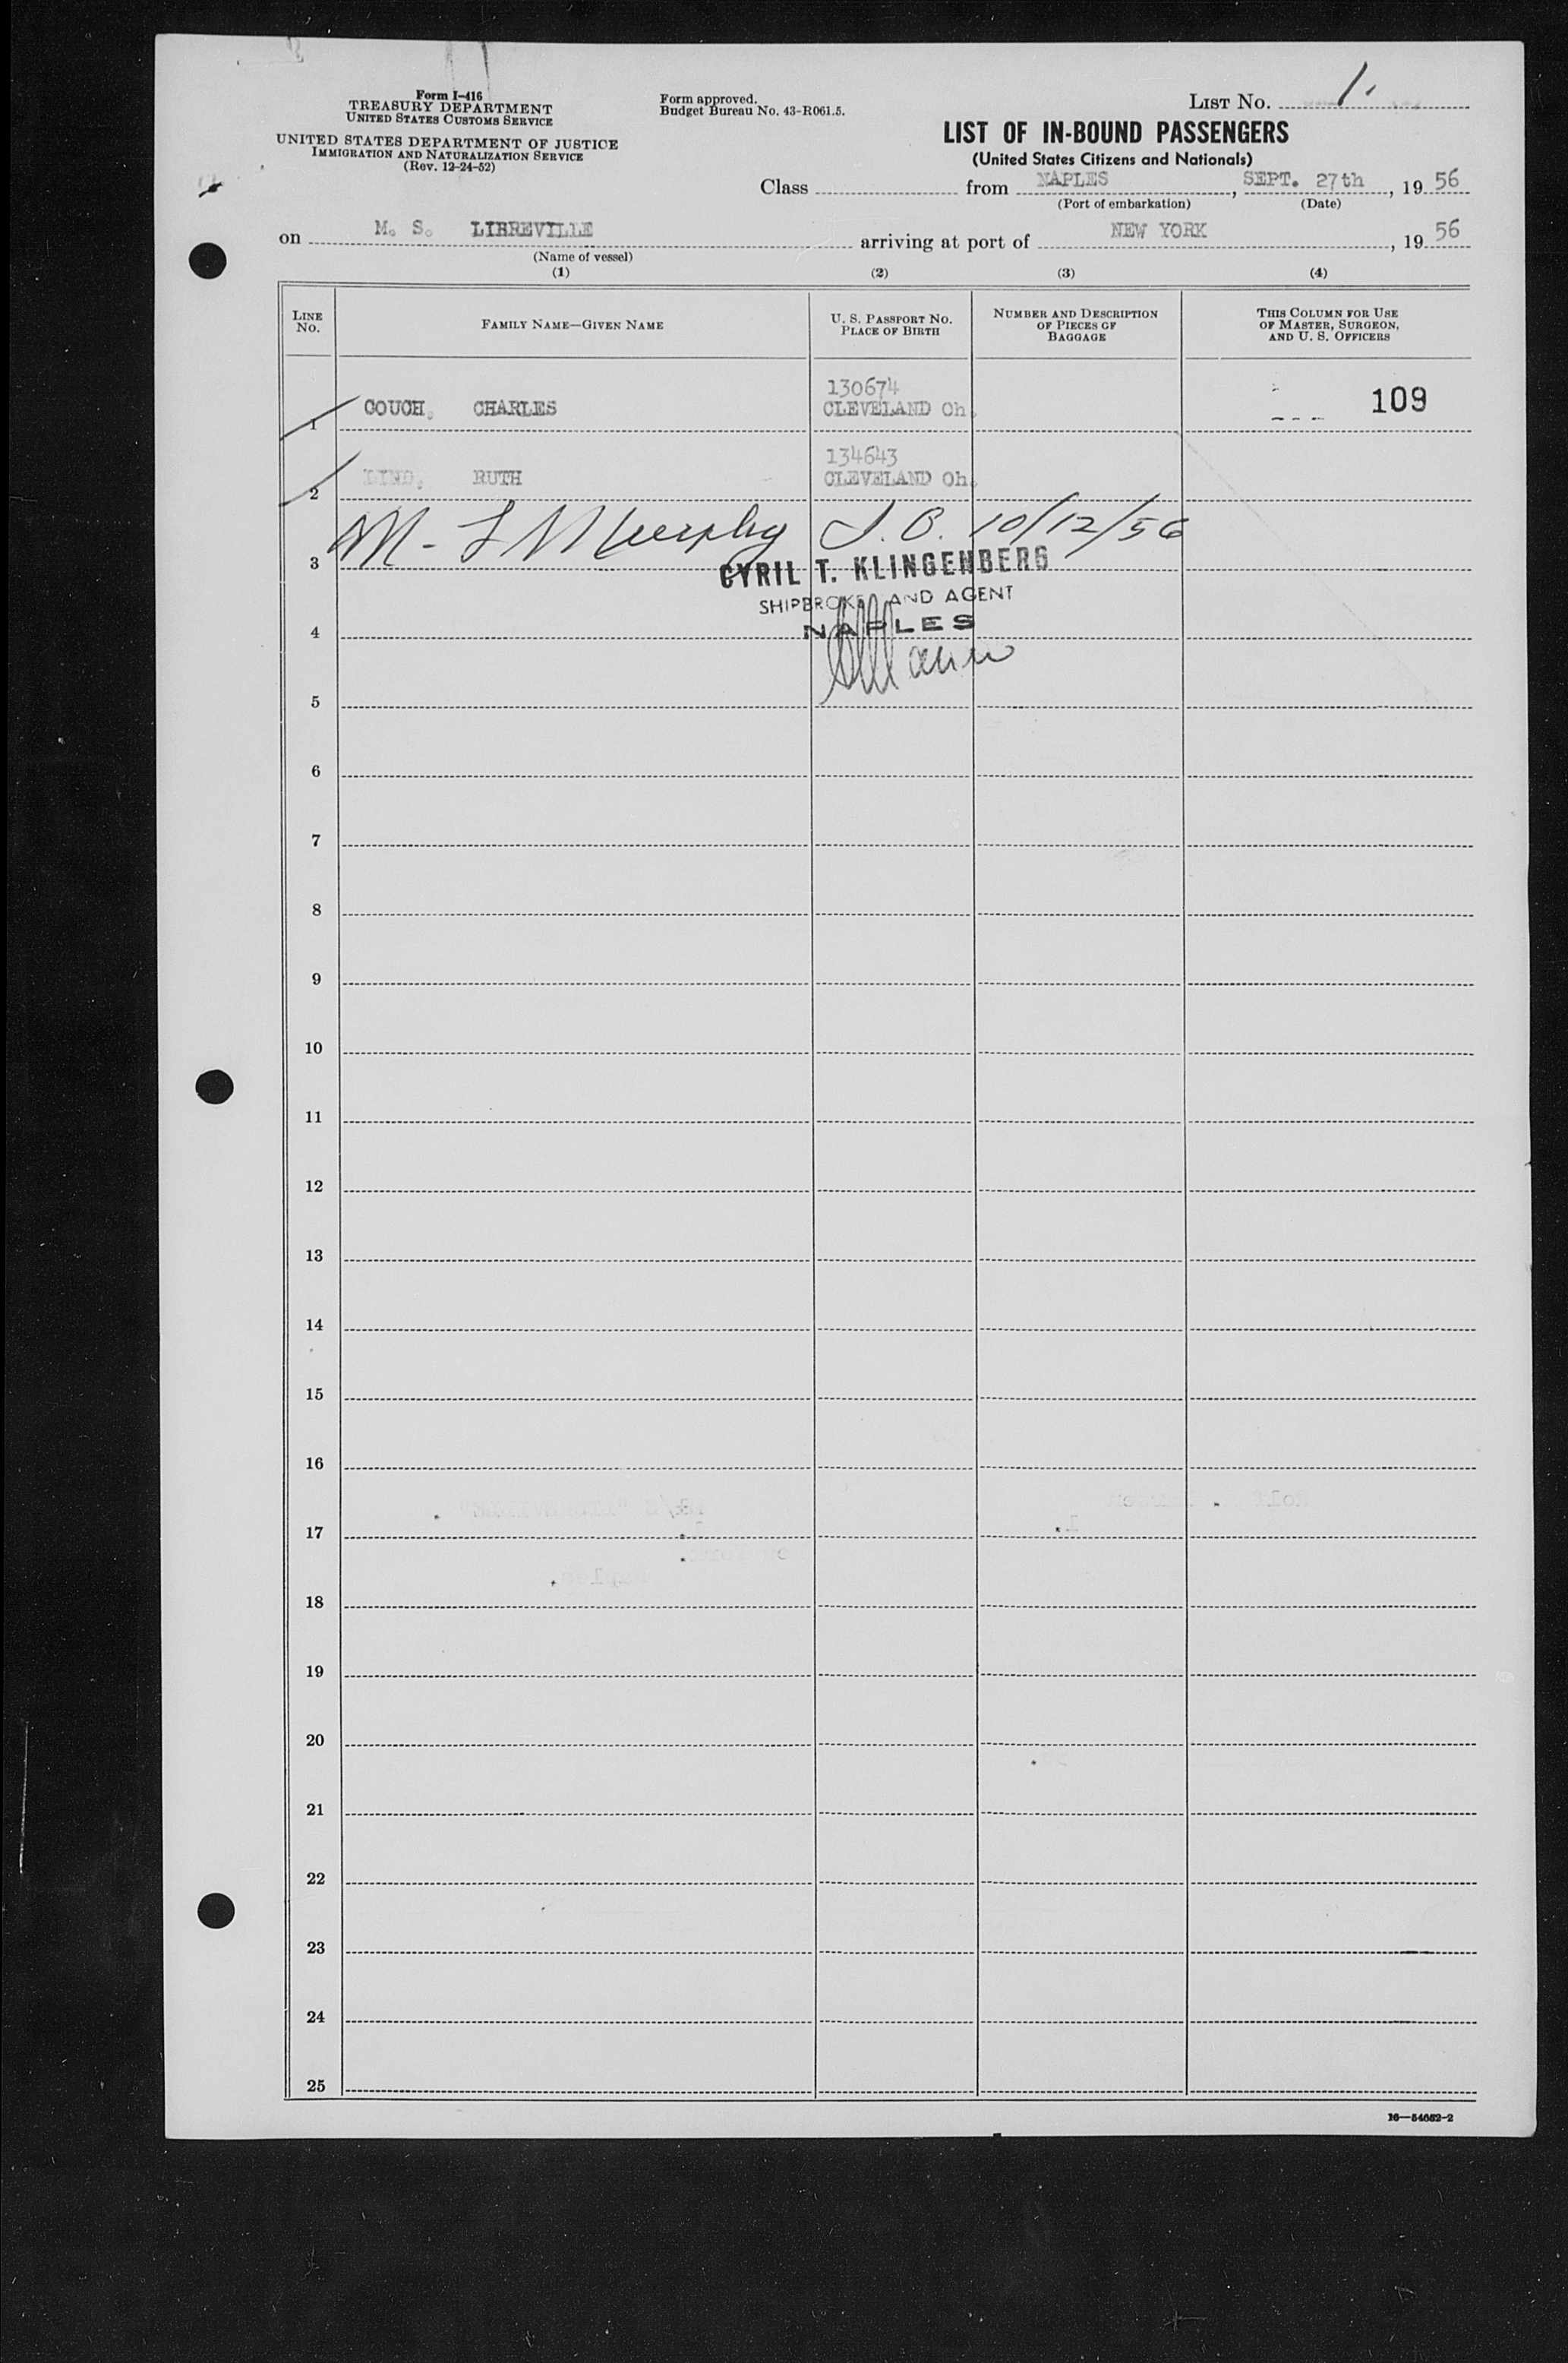 Form I-416
TREASURY DEPARTMENT
UNITED STATES CUSTOMS SERVICE
UNITED STATES DEPARTMENT OF JUSTICE
IMMIGRATION AND NATURALIZATION SERVICE
(Rev. 12-24-52)
Form approved.
Budget Bureau No. 43-R061.5.
LIST NO. 1.
LIST OF IN-BOUND PASSENGERS
(United States Citizens and Nationals)
Class from NAPLES, SEPT. 27th, 19 56
(Port of embarkation) (Date)
on M. S. LIBREVILLE arriving at port of NEW YORK, 19 56
(Name of vessel)
(1) (2) (3) (4)
LINE NO.
FAMILY NAME—GIVEN NAME
U. S. PASSPORT NO.
PLACE OF BIRTH
NUMBER AND DESCRIPTION
OF PIECES OF
BAGGAGE
THIS COLUMN FOR USE
OF MASTER, SURGEON,
AND U. S. OFFICERS
130674
1 GOUGH, CHARLES CLEVELAND Oh. 109
134643
2 LIND, RUTH CLEVELAND Oh.
Murphy 10/12/56
3
CYRIL T. KLINGENBERG
SHIPBROKER AND AGENT
NAPLES
4
5
6
7
8
9
10
11
12
13
14
15
16
17
18
19
20
21
22
23
24
25
16—54652-2